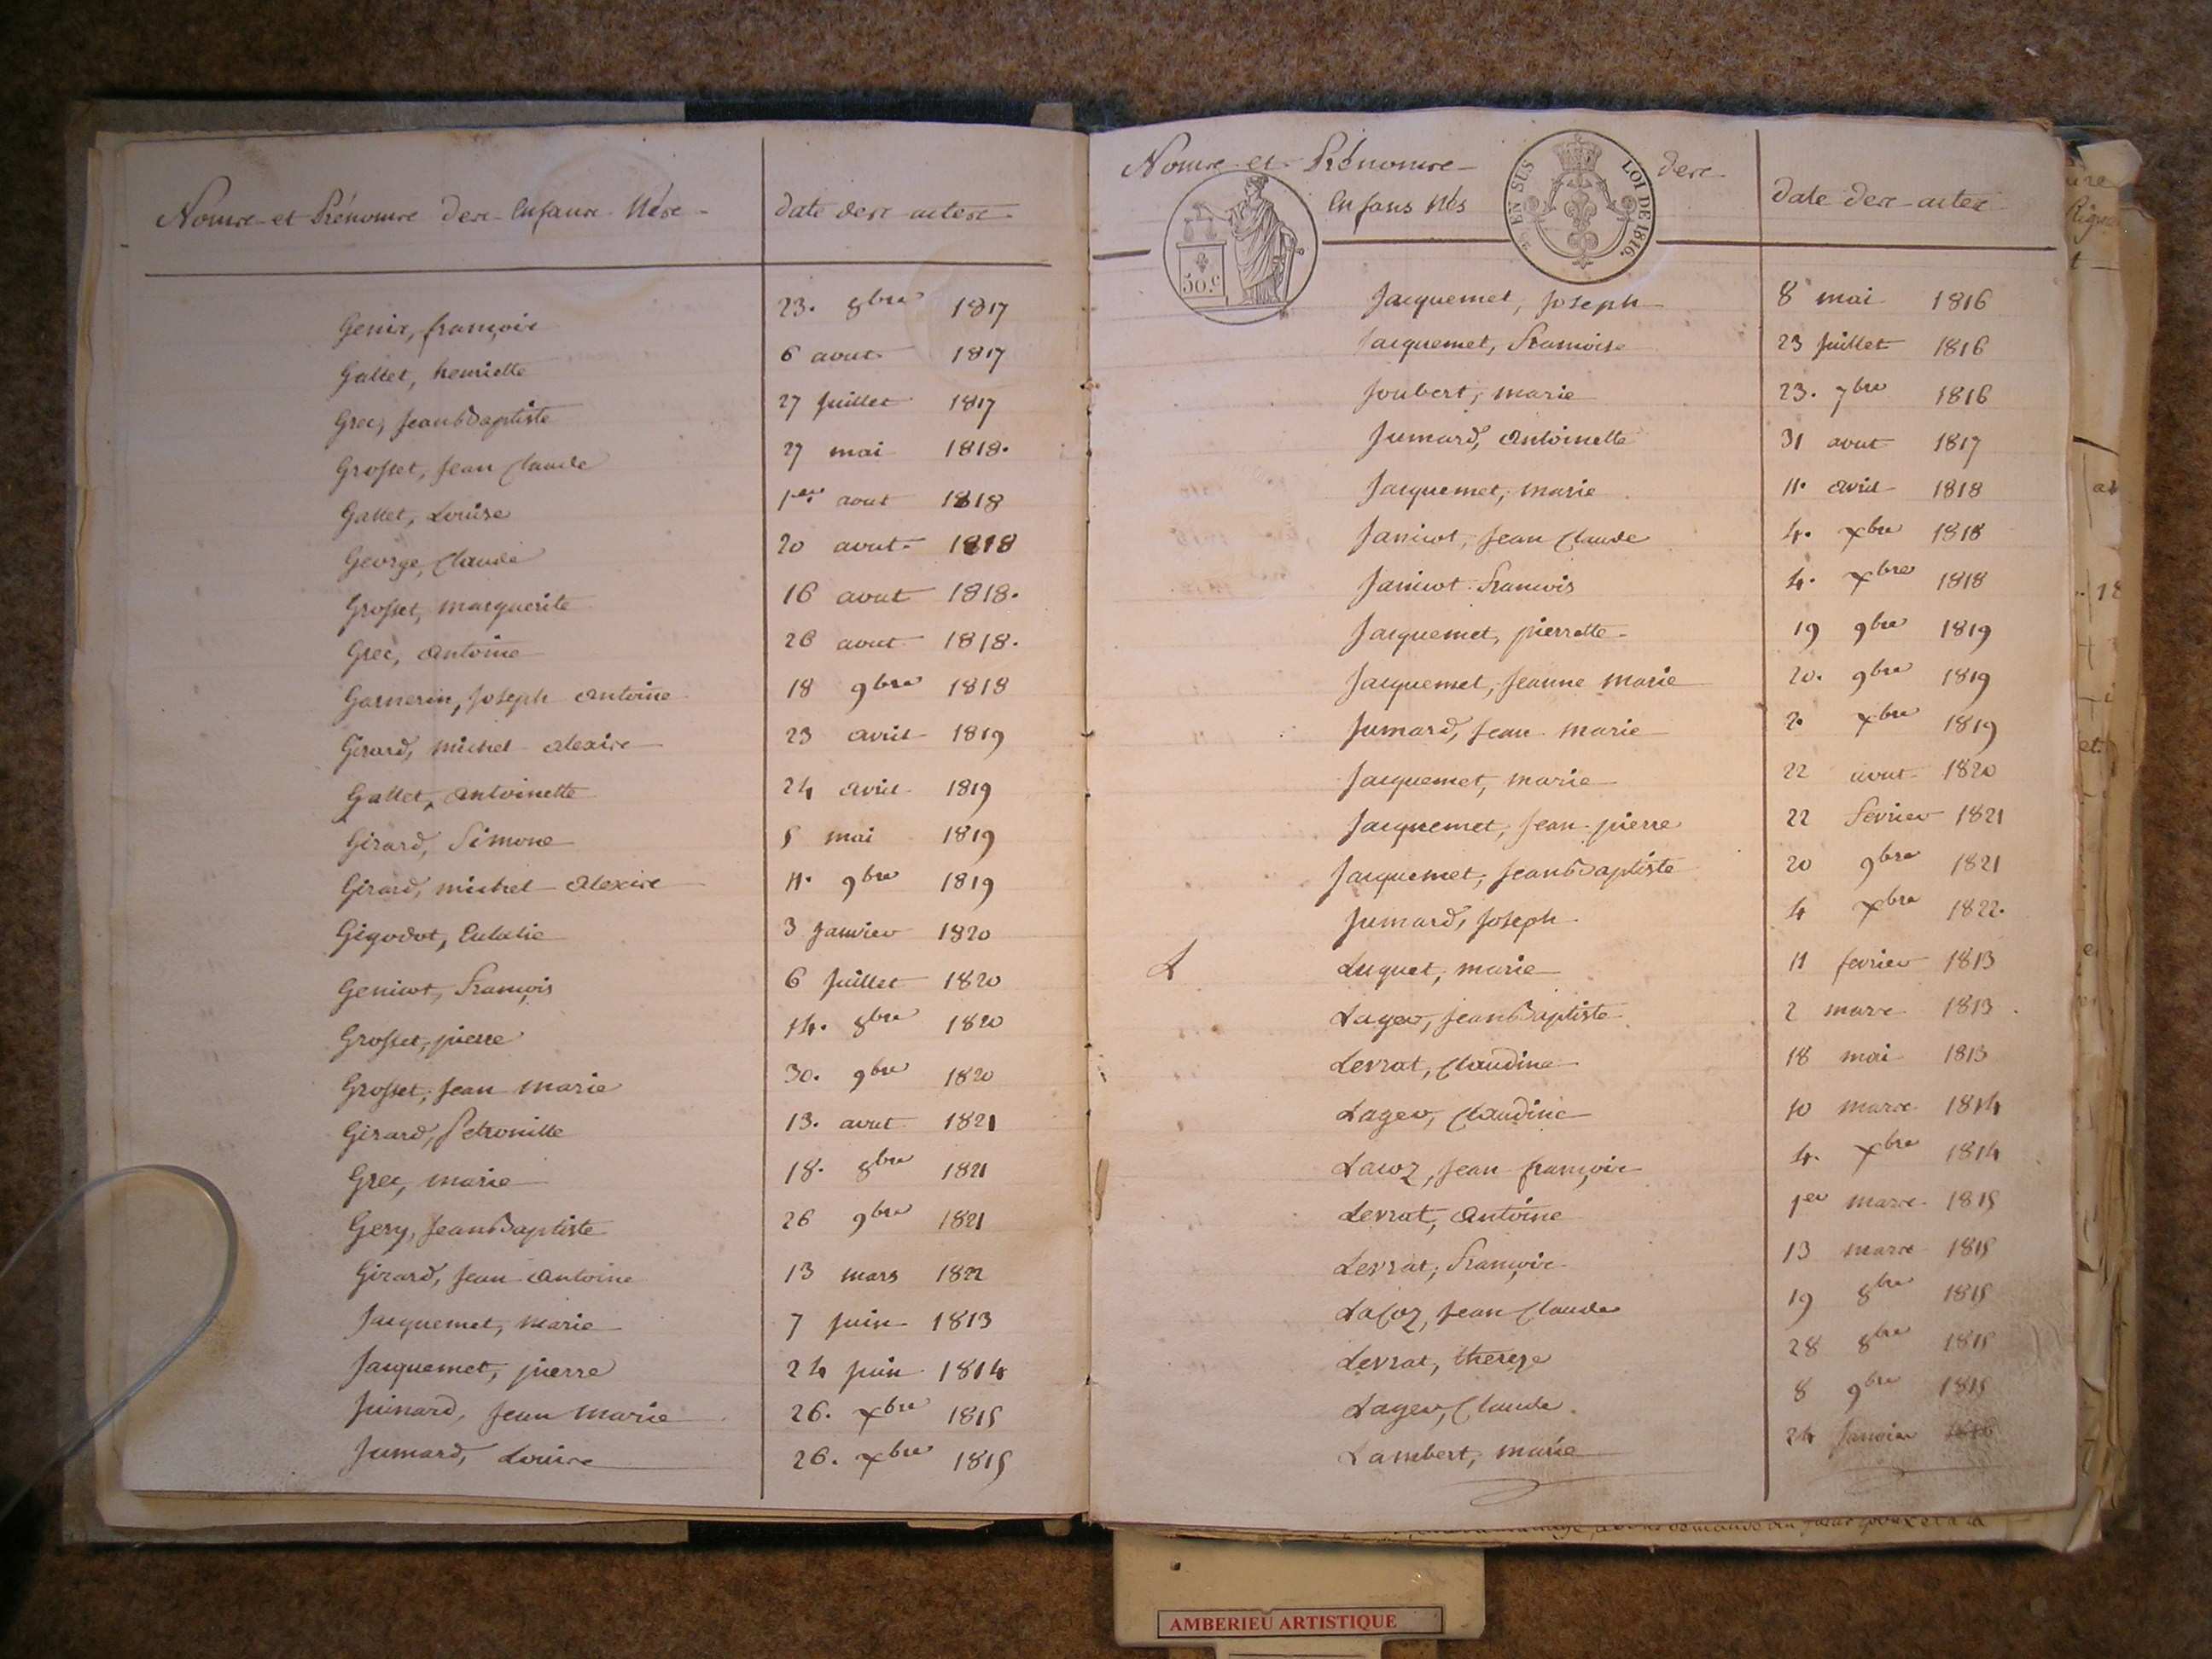 Noms et Prénoms des Enfans Nés
date des actes
Genix, françois 23. 8bre 1817
Gallet, henriette 6 aout 1817
Grec, Jean Baptiste 27 Juillet 1817
Grosset, Jean Claude 27 mai 1818.
Gallet, Louise 1er aout 1818
George, Claude 20 aout 1818
Grosset, marguerite 16 aout 1818.
Grec, Antoine 26 aout 1818.
Garnerin, Joseph Antoine 18 9bre 1818
Girard, michel alexis 23 avril 1819
Gallet, Antoinette 24 avril 1819
Girard, Simone 5 mai 1819
Girard, michel Alexis 11. 9bre 1819
Gigodot, Eulalie 3 Janvier 1820
Genicot, François 6 Juillet 1820
Grosset, pierre 14. 8bre 1820
Grosset, Jean marie 30. 9bre 1820
Girard, Petronille 13. aout 1821
Grec, marie 18. 8bre 1821
Gery, Jean Baptiste 26 9bre 1821
Girard, Jean Antoine 13 mars 1822
Jacquemet, marie 7 Juin 1813
Jacquemet, pierre 24 Juin 1814
Jumard, Jean Marie 26. xbre 1815
Jumard, Louise 26. xbre 1815
Noms et Prénoms des
Enfans Nés
50.c
EN SUS LOI DE 1816.
date des actes
Jacquemet, Joseph 8 mai 1816
Jacquemet, Francoise 23 Juillet 1816
Joubert, marie 23. 7bre 1816
Jumard, Antoinette 31 aout 1817
Jacquemet, marie 11. avril 1818
Janicot, Jean Claude 4. xbre 1818
Janicot Francois 4. xbre 1818
Jacquemet, pierrette 19 9bre 1819
Jacquemet, Jeanne marie 20. 9bre 1819
Jumard, Jean marie 2. xbre 1819
Jacquemet, marie 22 aout 1820
Jacquemet, Jean pierre 22 Fevrier 1821
Jacquemet, Jean Baptiste 20 9bre 1821
Jumard, Joseph 4 xbre 1822.
L Luguet, marie 11 fevrier 1813
Lager, Jean Baptiste 2 mars 1813.
Levrat, Claudine 18 mai 1813
Lager, Claudine 10 mars 1814
Lacoz, Jean françois 4. xbre 1814
Levrat, Antoine 1er mars 1815
Levrat, François 13 mars 1815
LaCoz, Jean Claude 19 8bre 1815
Levrat, thereze 28 8bre 1815
Lager, Claude 8 9bre 1815
Lambert, marie 24 Janvier 1816
AMBERIEU ARTISTIQUE